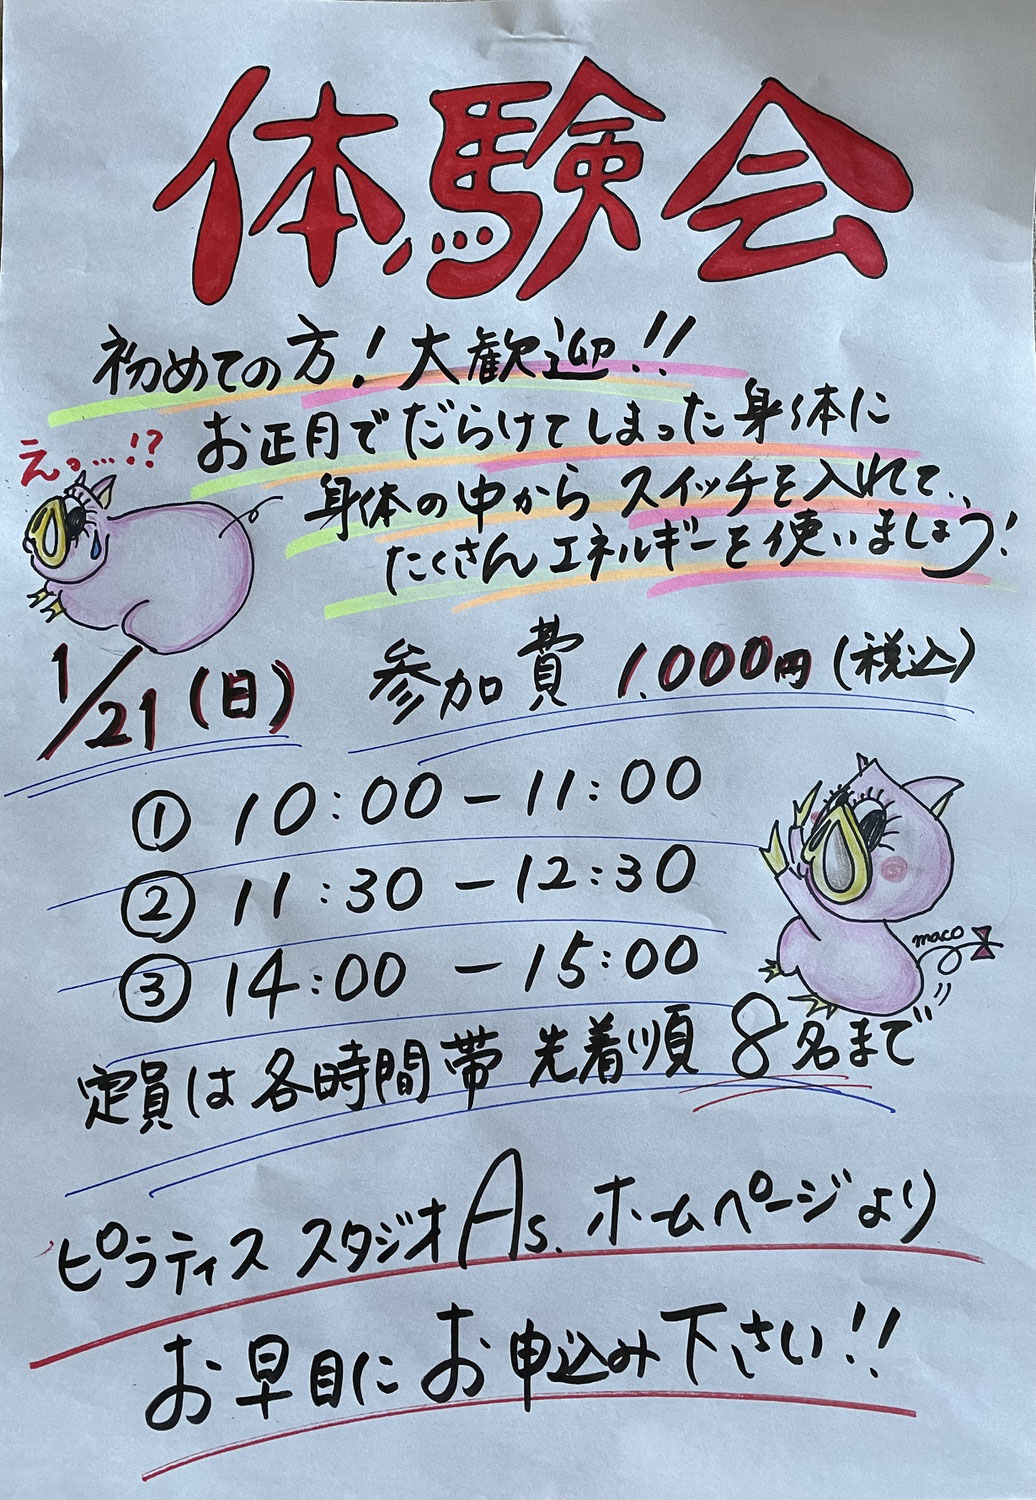 体験会
初めての方！大歓迎！！
えっ…！？
お正月でだらけてしまった身体に
身体の中からスイッチを入れて、
たくさんエネルギーを使いましょう！
1/21（日）
参加費 1.000円（税込）
① 10:00－11:00
② 11:30－12:30
③ 14:00－15:00
maco
定員は各時間帯 先着順 8名まで
ピラティス スタジオ As. ホームページより
お早目にお申込み下さい！！